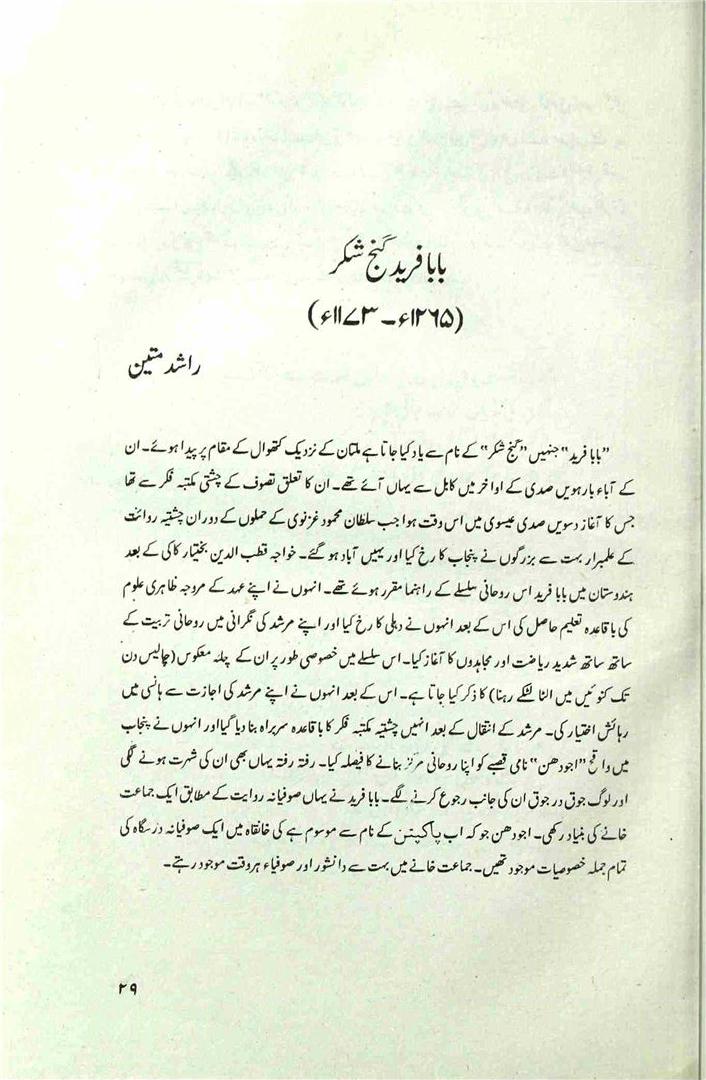 بابا فرید گنج شکر
(۱۲۶۵ء ۔ ۱۱۷۳ء)
راشد متین
”بابا فرید“ جنہیں ”گنج شکر“ کے نام سے یاد کیا جاتا ہے ملتان کے نزدیک کتھوال کے مقام پر پیدا ہوئے۔ ان
کے آباء بارہویں صدی کے اواخر میں کابل سے یہاں آئے تھے۔ ان کا تعلق تصوف کے چشتی مکتبہ فکر سے تھا
جس کا آغاز دسویں صدی عیسوی میں اس وقت ہوا جب سلطان محمود غزنوی کے حملوں کے دوران چشتیہ روائت
کے علمبرار بہت سے بزرگوں نے پنجاب کا رخ کیا اور یہیں آباد ہو گئے۔ خواجہ قطب الدین بختیار کاکی کے بعد
ہندوستان میں بابا فرید اس روحانی سلسلے کے راہنما مقرر ہوئے تھے۔ انہوں نے اپنے عہد کے مروجہ ظاہری علوم
کی باقاعدہ تعلیم حاصل کی اس کے بعد انہوں نے دہلی کا رخ کیا اور اپنے مرشد کی نگرانی میں روحانی تربیت کے
ساتھ ساتھ شدید ریاضت اور مجاہدوں کا آغاز کیا۔ اس سلسلے میں خصوصی طور پر ان کے چلہ معکوس (چالیس دن
تک کنوئیں میں الٹا لٹکے رہنا) کا ذکر کیا جاتا ہے۔ اس کے بعد انہوں نے اپنے مرشد کی اجازت سے ہانسی میں
رہائش اختیار کی۔ مرشد کے انتقال کے بعد انہیں چشتیہ مکتبہ فکر کا باقاعدہ سربراہ بنا دیا گیا اور انہوں نے پنجاب
میں واقع ”اجودھن“ نامی قصبے کو اپنا روحانی مرکز بنانے کا فیصلہ کیا۔ رفتہ رفتہ یہاں بھی ان کی شہرت ہونے لگی
اور لوگ جوق در جوق ان کی جانب رجوع کرنے لگے۔ بابا فرید نے یہاں صوفیانہ روایت کے مطابق ایک جماعت
خانے کی بنیاد رکھی۔ اجودھن جو کہ اب پاکپتن کے نام سے موسوم ہے کی خانقاہ میں ایک صوفیانہ درسگاہ کی
تمام جملہ خصوصیات موجود تھیں۔ جماعت خانے میں بہت سے دانشور اور صوفیاء ہر وقت موجود رہتے۔
۲۹